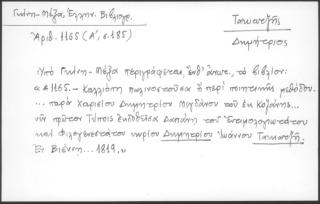 Γκίνη-Μέξα, Ἑλλην. Βιβλιογρ.
Ἀριθ. 1165 (Α', σ. 185)
Τακιατζῆς
Δημήτριος
«Ὑπὸ Γκίνη-Μέξα περιγράφεται, ἔνθ' ἀνωτ., τὸ βιβλίον:
«*1165.- Καλλιόπη παλινοστοῦσα ἢ περὶ ποιητικῆς μεθόδου.
... παρὰ Χαρισίου Δημητρίου Μεγδάνου τοῦ ἐκ Κοζάνης...
νῦν πρῶτον Τύποις ἐκδοθεῖσα δαπάνῃ τοῦ Ἐντιμολογωτάτου
καὶ φιλογενεστάτου κυρίου Δημητρίου Ἰωάννου Τακιατζῆ.
Ἐν Βιέννῃ... 1819.»